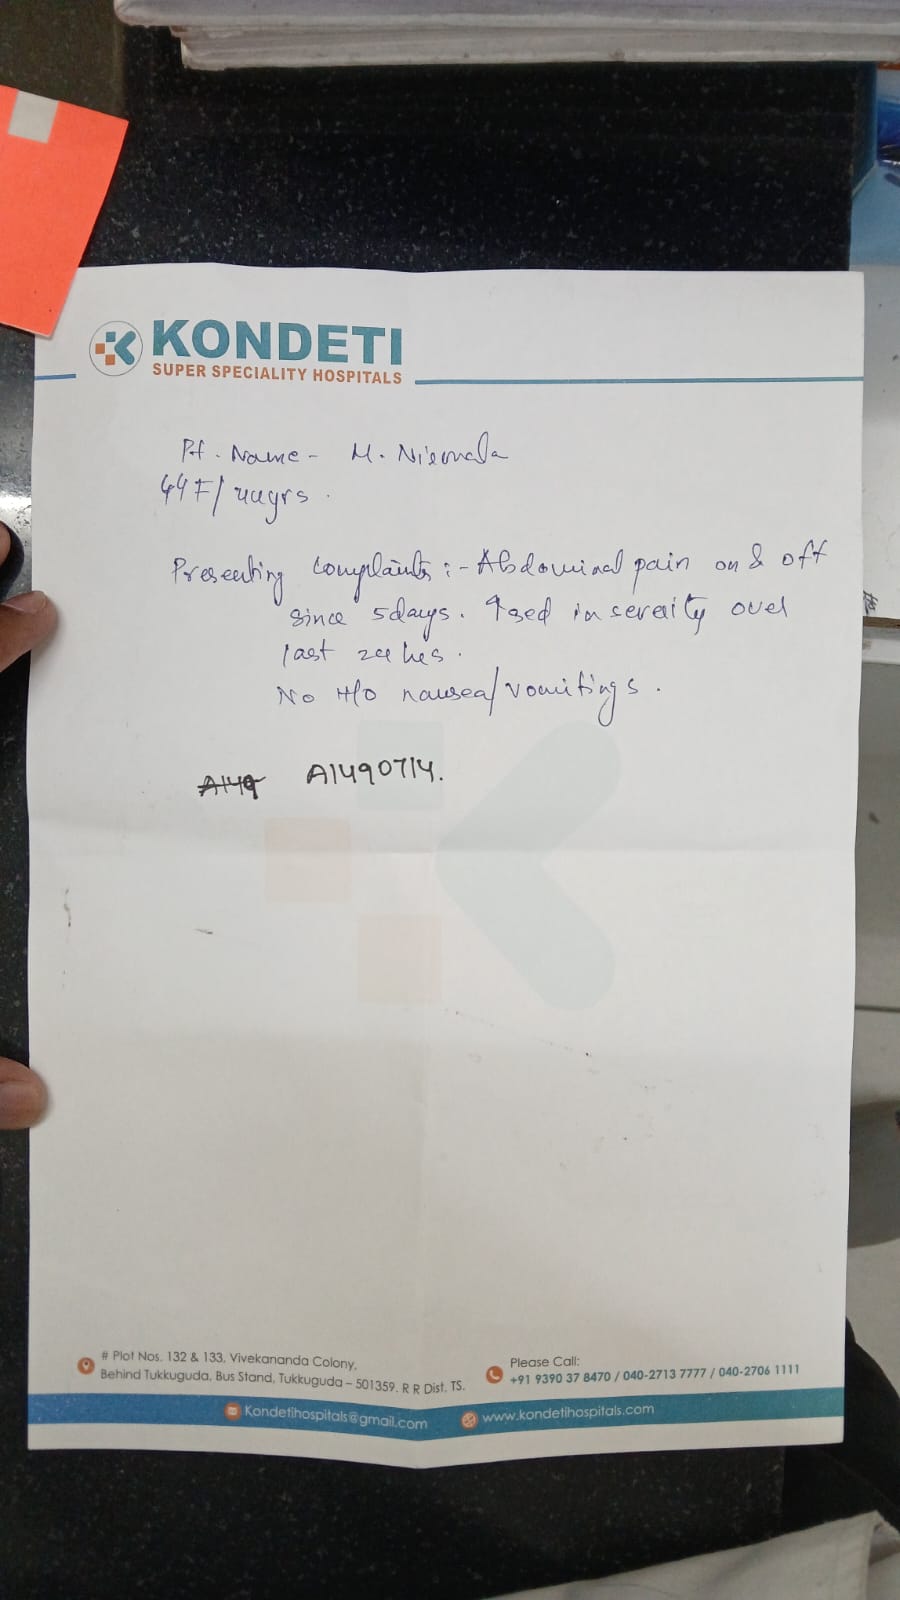 KONDETI
SUPER SPECIALITY HOSPITALS
Pt. Name - M. Nirmala
44F/44yrs.
Presenting complaints :- Abdominal pain on & off
since 5days. ↑sed in sevraity over
last 24 hrs.
No H/o nausea/vomitings.
A149 A1490714.
# Plot Nos. 132 & 133, Vivekananda Colony,
Behind Tukkuguda, Bus Stand, Tukkuguda – 501359. R R Dist. TS.
Please Call:
+91 9390 37 8470 / 040-2713 7777 / 040-2706 1111
Kondetihospitals@gmail.com
www.kondetihospitals.com